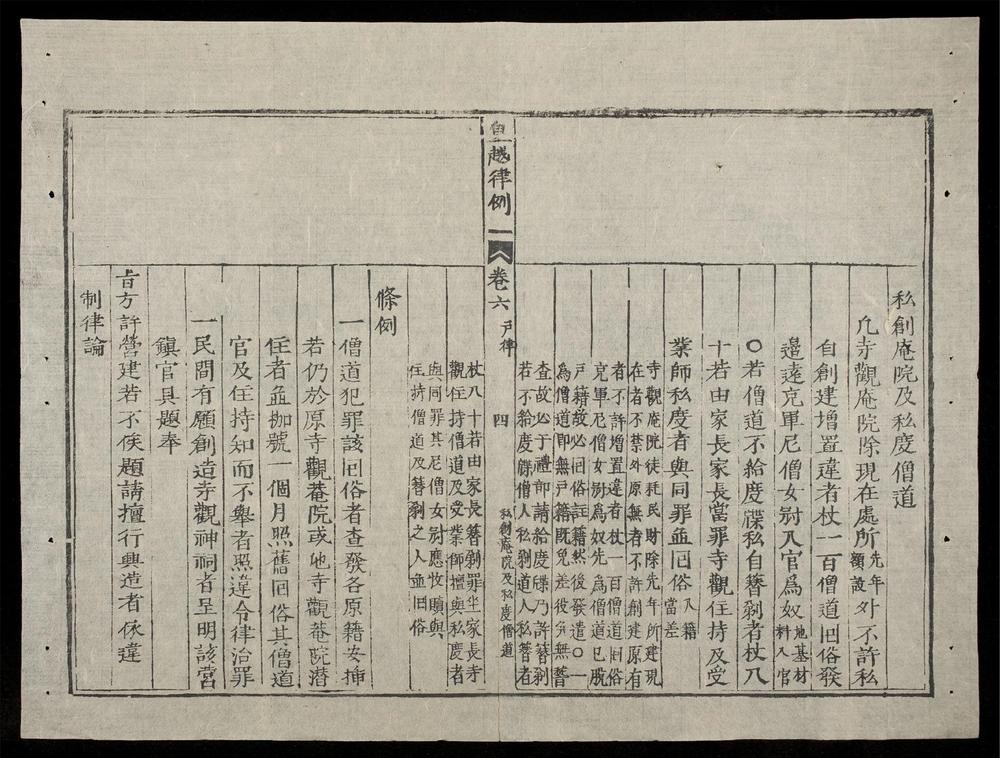 私創庵院及私度僧道
凢寺觀庵院除現在處所先年額設外不許私
自創建增置違者杖一百僧道囘俗發
邉遠充軍尼僧女冠入官爲奴地基材料入官
〇若僧道不給度牒私自簪剃者杖八
十若由家長家長當罪寺觀住持及受
業師私度者與同罪並囘俗入籍當差
寺觀庵院徒耗民財除先年所建現
在者不禁外原無者不許創建原有
者不許增置違者杖一百僧道囘俗
充軍尼僧女冠爲奴先爲僧道已脫
戸籍故必囘俗註籍然後發遣〇一
為僧道即無戸籍既免差役矣無稽
查故必于禮部請給度牒乃許簪剃
若不給度牒僧人私剃道人私簪者
皇越律例 一 卷六 戸律 四 私創庵院及私度僧道
杖八十若由家長簪剃罪坐家長寺
觀住持僧道及受業師擅與私度者
與同罪其尼僧女冠應收贖與
住持僧道及簪剃之人並囘俗
條例
一僧道犯罪該囘俗者查發各原籍安插
若仍於原寺觀菴院或他寺觀菴院潜
住者並枷號一個月照舊囘俗其僧道
官及住持知而不舉者照違令律治罪
一民間有願創造寺觀神祠者呈明該營
鎮官具題奉
旨方許營建若不俟題請擅行興造者依違
制律論